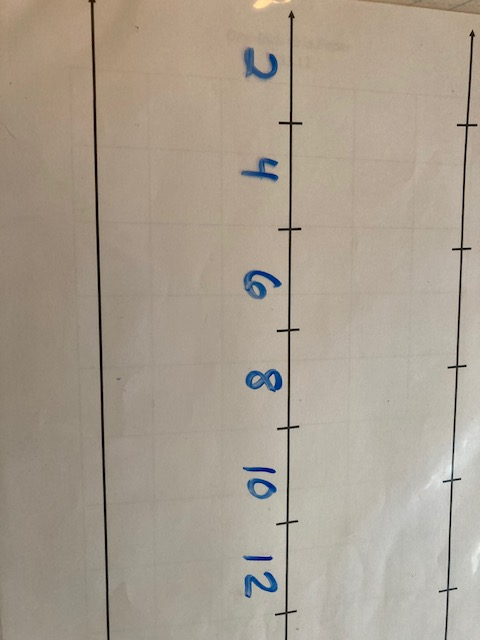 2 4 6 8 10 12